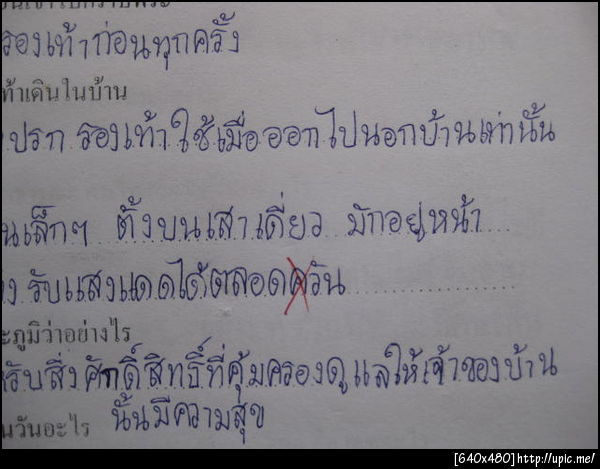 รองเท้าก่อนทุกครั้ง
ท้าเดินในบ้าน
ปรก รองเท้าใช้เมื่อออกไปนอกบ้านเท่านั้น
นเล็กๆ ตั้งบนเสาเดี่ยว มักอยู่หน้า
ง รับแสงแดดได้ตลอดควัน
ะภูมิว่าอย่างไร
รับสิ่งศักดิ์สิทธิ์ที่คุ้มครองดูแลให้เจ้าของบ้าน
นั้นมีความสุข
นวันอะไร
[640x480]http://upic.me/